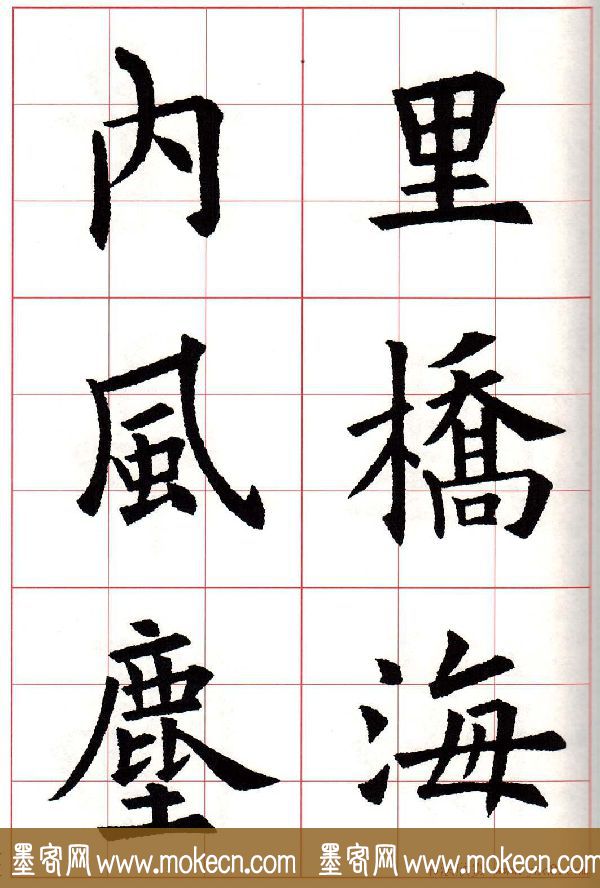 里橋海
内風塵
墨客网 www.mokecn.com 墨客网 www.mokecn.com